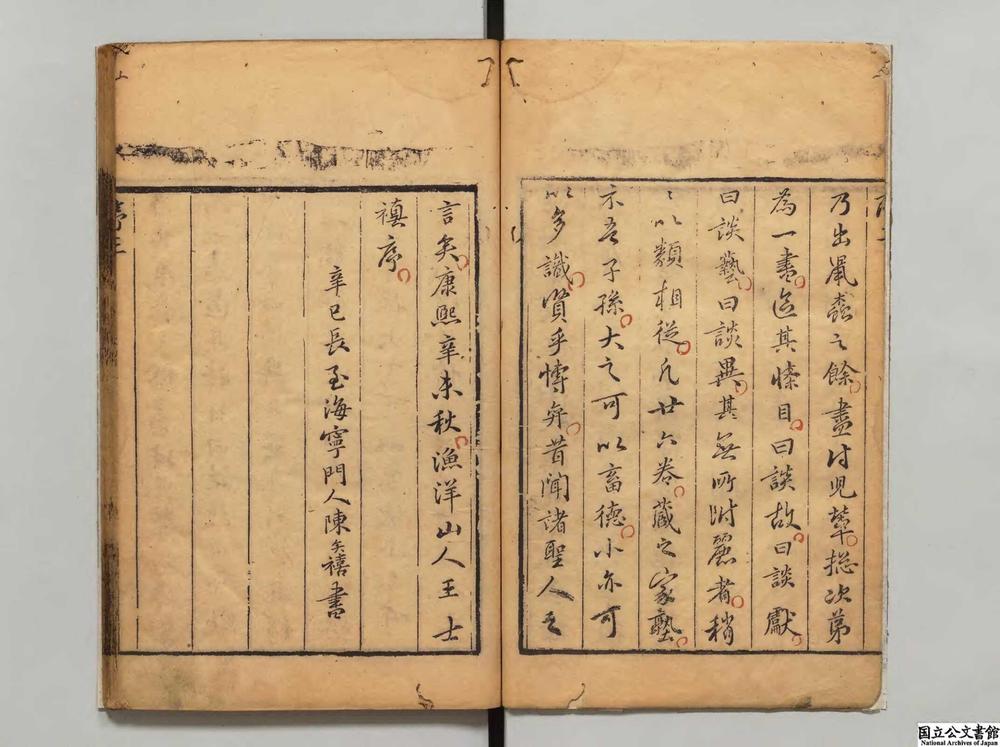 乃出鼠蠹之餘盡付兒輩摠次第
為一書區其條目曰談故曰談獻
曰談藝曰談異其無所附麗者稍
〻以類相從凡廿六卷藏之家塾
示吾子孫大之可以畜德小亦可
以多識賢乎博弈昔聞諸聖人之
言矣康熙辛未秋漁洋山人王士
禛序
辛巳長至海寧門人陳奕禧書
序三
国立公文書館
National Archives of Japan